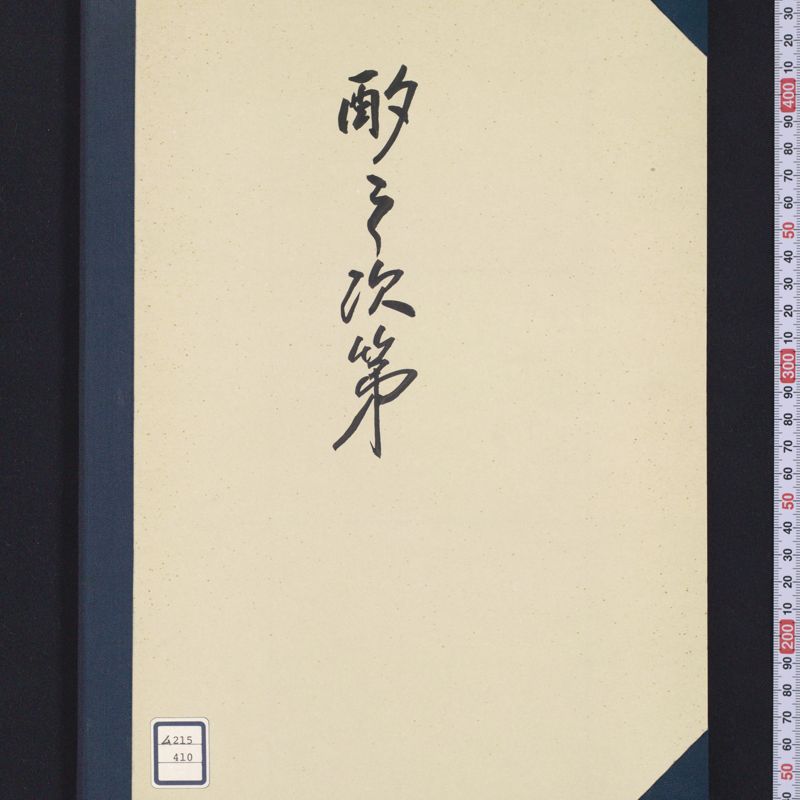 酌之次第
ム215
410
30
20
10
400
90
80
70
60
50
40
30
20
10
300
90
80
70
60
50
40
30
20
10
200
90
80
70
60
50